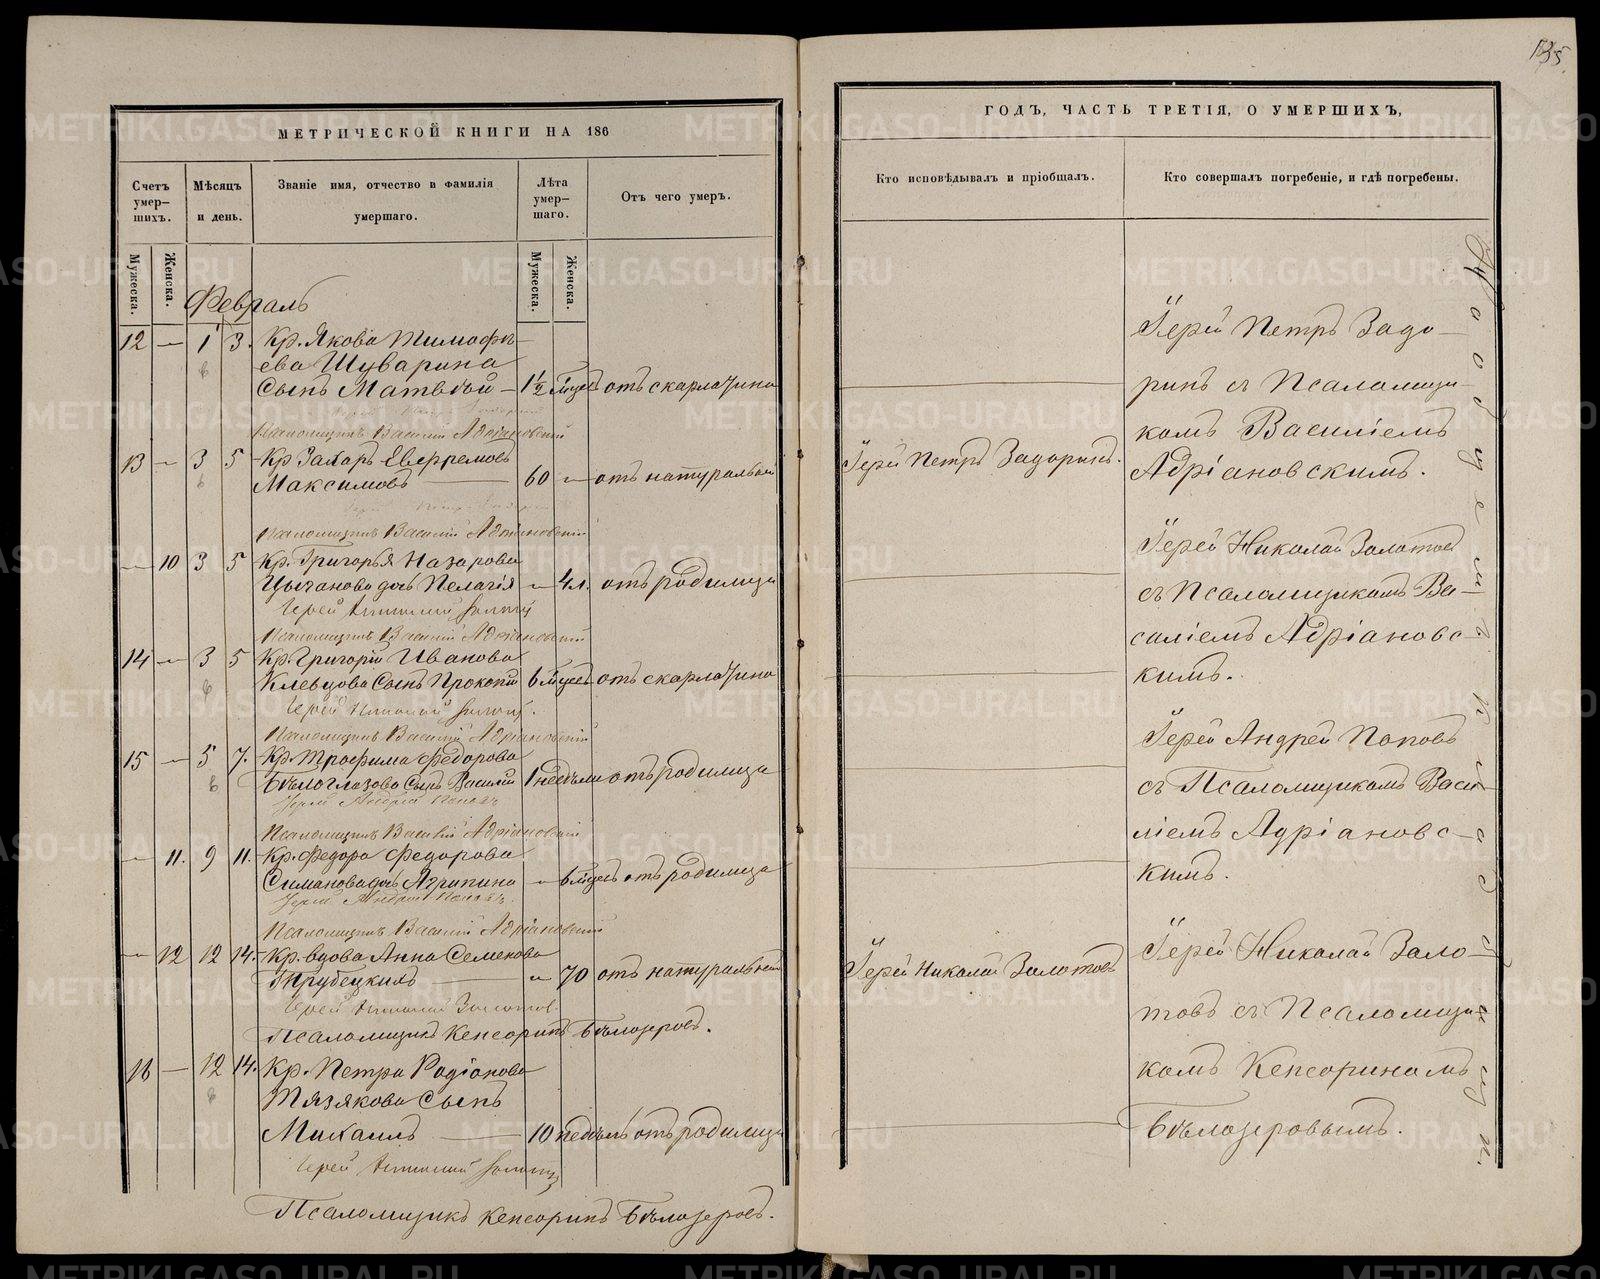 135
МЕТРИЧЕСКОЙ КНИГИ НА 186
ГОДЪ, ЧАСТЬ ТРЕТІЯ, О УМЕРШИХЪ,
Счетъ умер-шихъ.
Мѣсяцъ и день.
Званіе имя, отчество и фамилія умершаго.
Лѣта умер-шаго.
Отъ чего умеръ.
Кто исповѣдывалъ и пріобщалъ.
Кто совершалъ погребеніе, и гдѣ погребены.
Мужеска.
Женска.
Мужеска.
Женска.
Февраль
12 — 1 3. Кр. Якова Тимофѣ-
ева Шуварина
Сынъ Матвѣй — 1½ мѣсц отъ скарлатина
Псаломщикъ Василій Адріановскій
13 — 3 5 Кр Захаръ Евфремовъ
Максимовъ — 60 — отъ натуральной
Іерей Петръ Задоринъ.
Псаломщикъ Василій Адріановскій
— 10 3 5 Кр. Григорья Назарова
Цыганова дочь Пелагія — 4 л. отъ родимца
Іерей Николай Золотов
Псаломщикъ Василій Адріановскій
14 — 3 5 Кр. Григорій Иванова
Клевцова Сынъ Прокопій 6 мѣсц отъ скарлатина
Іерей Николай Золотов.
Псаломщикъ Василій Адріановскій
15 — 5 7. Кр. Трофима Федорова
Бѣлоглазова Сынъ Василій 1 недѣли отъ родимца
Іерей Андрей Поповъ
Псаломщикъ Василій Адріановскій
— 11. 9 11. Кр. Федора Федорова
Симанова дочь Агрипина — 6 мѣсц отъ родимца
Іерей Андрей Поповъ.
Псаломщикъ Василій Адріановскій
— 12 12 14. Кр. вдова Анна Семенова
Трубецкихъ — 70 отъ натуральной
Іерей Николай Золотовъ
Іерей Николай Золотов
Псаломщикъ Кенсоринъ Бѣлозеровъ.
16 — 12 14. Кр. Петра Родіонова
Тязякова Сынъ
Михаилъ — 10 недѣль отъ родимца
Іерей Николай Золотов
Псаломщикъ Кенсоринъ Бѣлозеровъ.
Іерей Петръ Задо-
ринъ съ Псаломщи-
комъ Василіемъ
Адріановскимъ.
Іерей Николай Золотов
съ Псаломщикомъ Ва-
силіемъ Адріановс-
кимъ.
Іерей Андрей Поповъ
съ Псаломщикомъ Васи-
ліемъ Адріановс-
кимъ.
Іерей Николай Золо-
товъ съ Псаломщи-
комъ Кенсориномъ
Бѣлозеровымъ.
METRIKI.GASO-URAL.RU